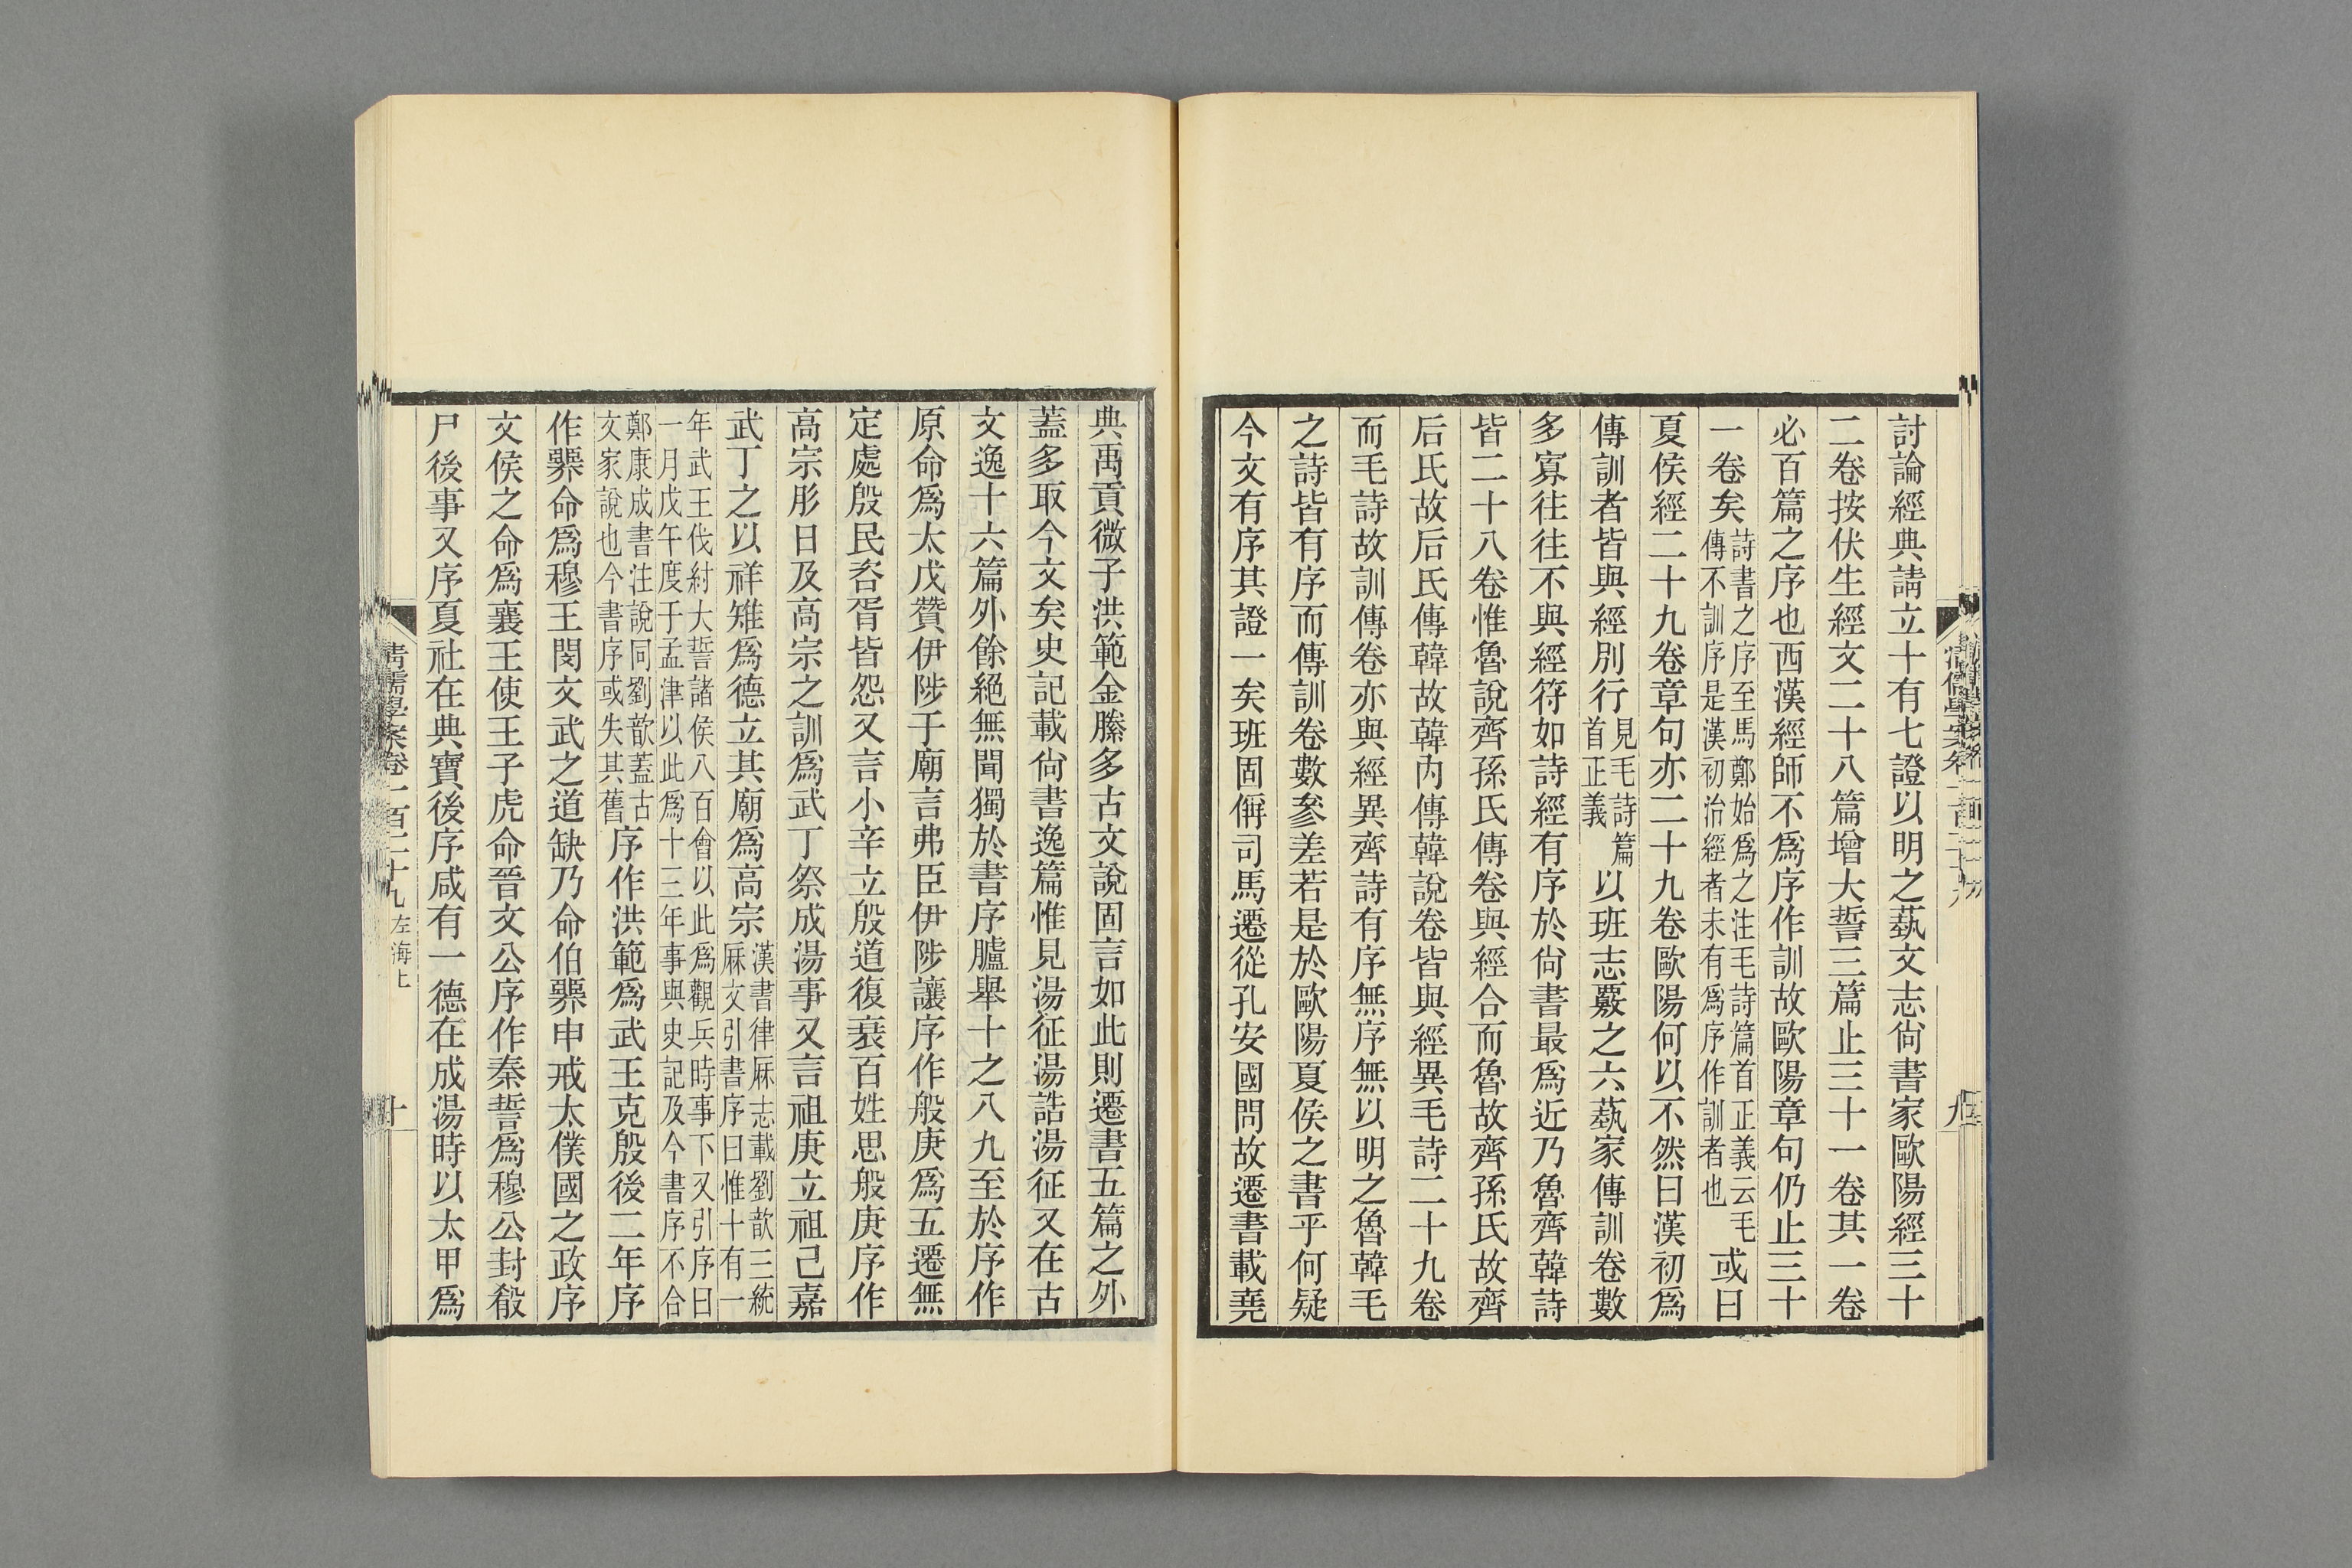 討論經典請立十有七證以明之蓺文志尙書家歐陽經三十
二卷按伏生經文二十八篇增大誓三篇止三十一卷其一卷
必百篇之序也西漢經師不爲序作訓故歐陽章句仍止三十
一卷矣詩書之序至馬鄭始爲之注毛詩篇首正義云毛傳不訓序是漢初治經者未有爲序作訓者也或曰
夏侯經二十九卷章句亦二十九卷歐陽何以不然曰漢初爲
傳訓者皆與經別行見毛詩篇首正義以班志覈之六蓺家傳訓卷數
多寡往往不與經符如詩經有序於尙書最爲近乃魯齊韓詩
皆二十八卷惟魯說齊孫氏傳卷與經合而魯故齊孫氏故齊
后氏故后氏傳韓故韓內傳韓說卷皆與經異毛詩二十九卷
而毛詩故訓傳卷亦與經異齊詩有序無序無以明之魯韓毛
之詩皆有序而傳訓卷數參差若是於歐陽夏侯之書乎何疑
今文有序其證一矣班固偁司馬遷從孔安國問故遷書載堯
清儒學案卷一百二十九
九
典禹貢微子洪範金縢多古文說固言如此則遷書五篇之外
蓋多取今文矣史記載尙書逸篇惟見湯征湯誥湯征又在古
文逸十六篇外餘絕無聞獨於書序臚舉十之八九至於序作
原命爲太戊贊伊陟于廟言弗臣伊陟讓序作般庚爲五遷無
定處殷民咨胥皆怨又言小辛立殷道復衰百姓思般庚序作
高宗肜日及高宗之訓爲武丁祭成湯事又言祖庚立祖己嘉
武丁之以祥雉爲德立其廟爲高宗漢書律厤志載劉歆三統厤文引書序曰惟十有一
年武王伐紂大誓諸侯八百會以此爲觀兵時事下又引序曰一月戊午度于孟津以此爲十三年事與史記及今書序不合
鄭康成書注說同劉歆蓋古文家說也今書序或失其舊序作洪範爲武王克殷後二年序
作臩命爲穆王閔文武之道缺乃命伯臩申戒太僕國之政序
文侯之命爲襄王使王子虎命晉文公序作秦誓爲穆公封殽
尸後事又序夏社在典寶後序咸有一德在成湯時以太甲爲
清儒學案卷一百二十九 左海上
十